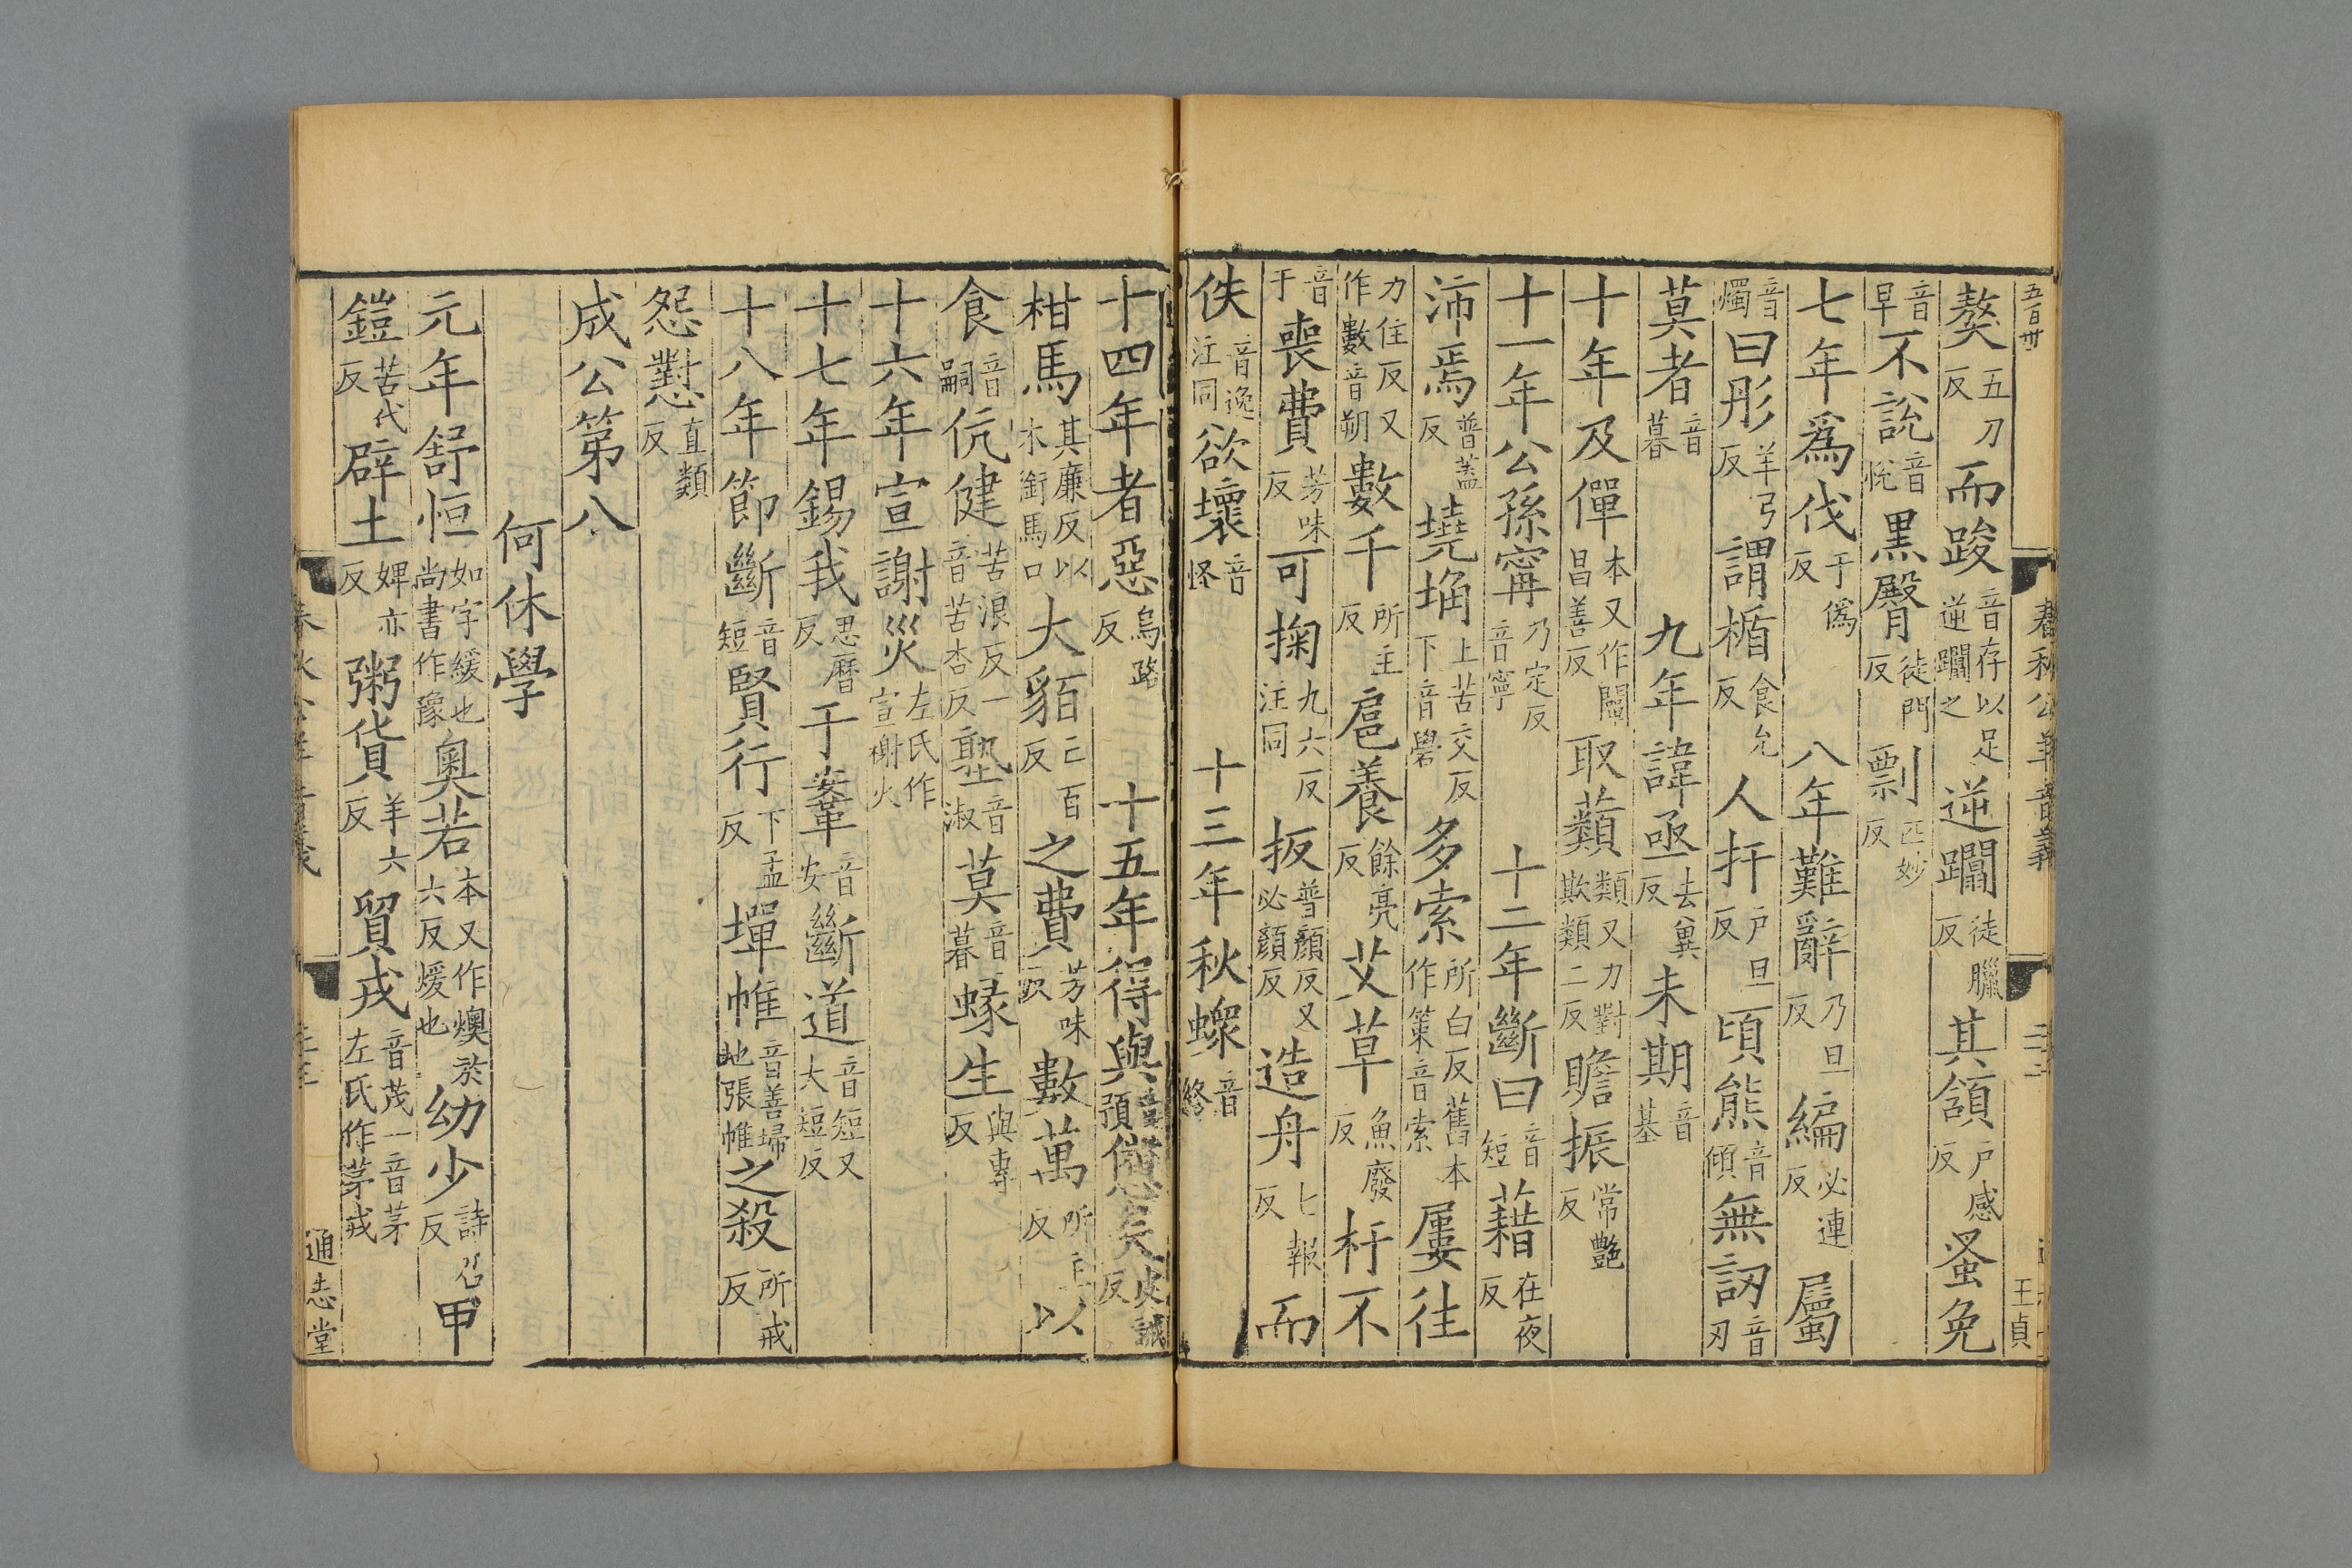 五百卅
春秋公羊音義
二十二
王貞
獒五刀反而踆音存以足逆躝之逆躝徒臘反其頷戶感反蚤免
音早不說音悅黑臀徒門反剽匹妙反
七年爲伐于僞反八年難辭乃旦反編必連反屬
音燭曰肜羊弓反謂楯食允反人扞戶旦反頃熊音傾無訒音刃
莫者音暮九年諱亟去兾反未期音基
十年及僤本又作闡昌善反取蘱類又力對欺類二反贍振常艷反
十一年公孫寗乃定反音寧十二年斷曰音短藉在夜反
沛焉普蓋反墝埆上苦交反下音學多索所白反舊本作策音索屢往
力住反又作數音朔數千所主反扈養餘亮反艾草魚廢反杅不
音于喪費芳味反可掬九六反注同扳普顏反又必顏反造舟七報反而
佚音逸注同欲壞音怪十三年秋螺音終
十四年者惡烏路反十五年得與音預憊矣皮誡反
柑馬其廉反以木銜馬口大貊亡百反之費芳味反數萬所主反以
食音嗣伉健苦浪反一音苦杏反塾音淑莫音暮蝝生與專反
十六年宣謝災左氏作宣榭火
十七年錫我思曆反于鞌音安斷道音短又大短反
十八年節斷音短賢行下孟反墠帷音善埽地張帷之殺所戒反
怨懟直類反
成公第八
何休學
元年舒恒如字緩也尚書作豫奧若本又作燠於六反煖也幼少詩召反甲
鎧苦代反辟土婢亦反粥貨羊六反貿戎音茂一音茅左氏作茅戎
春秋公羊音義
通志堂